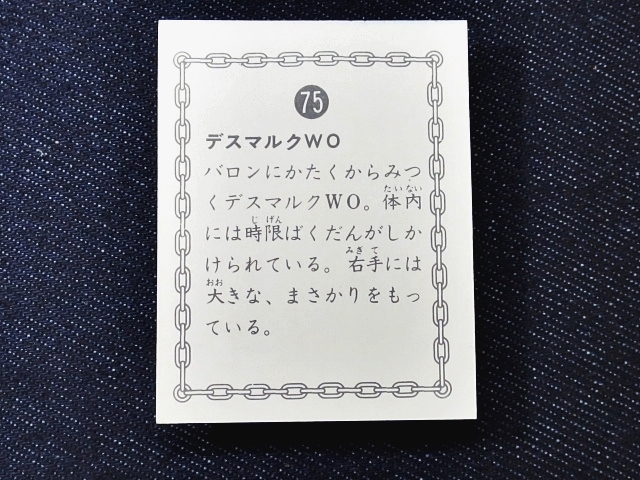 75
デスマルクWO
バロンにかたくからみつ
くデスマルクWO。体内
には時限ばくだんがしか
けられている。右手には
大きな、まさかりをもっ
ている。